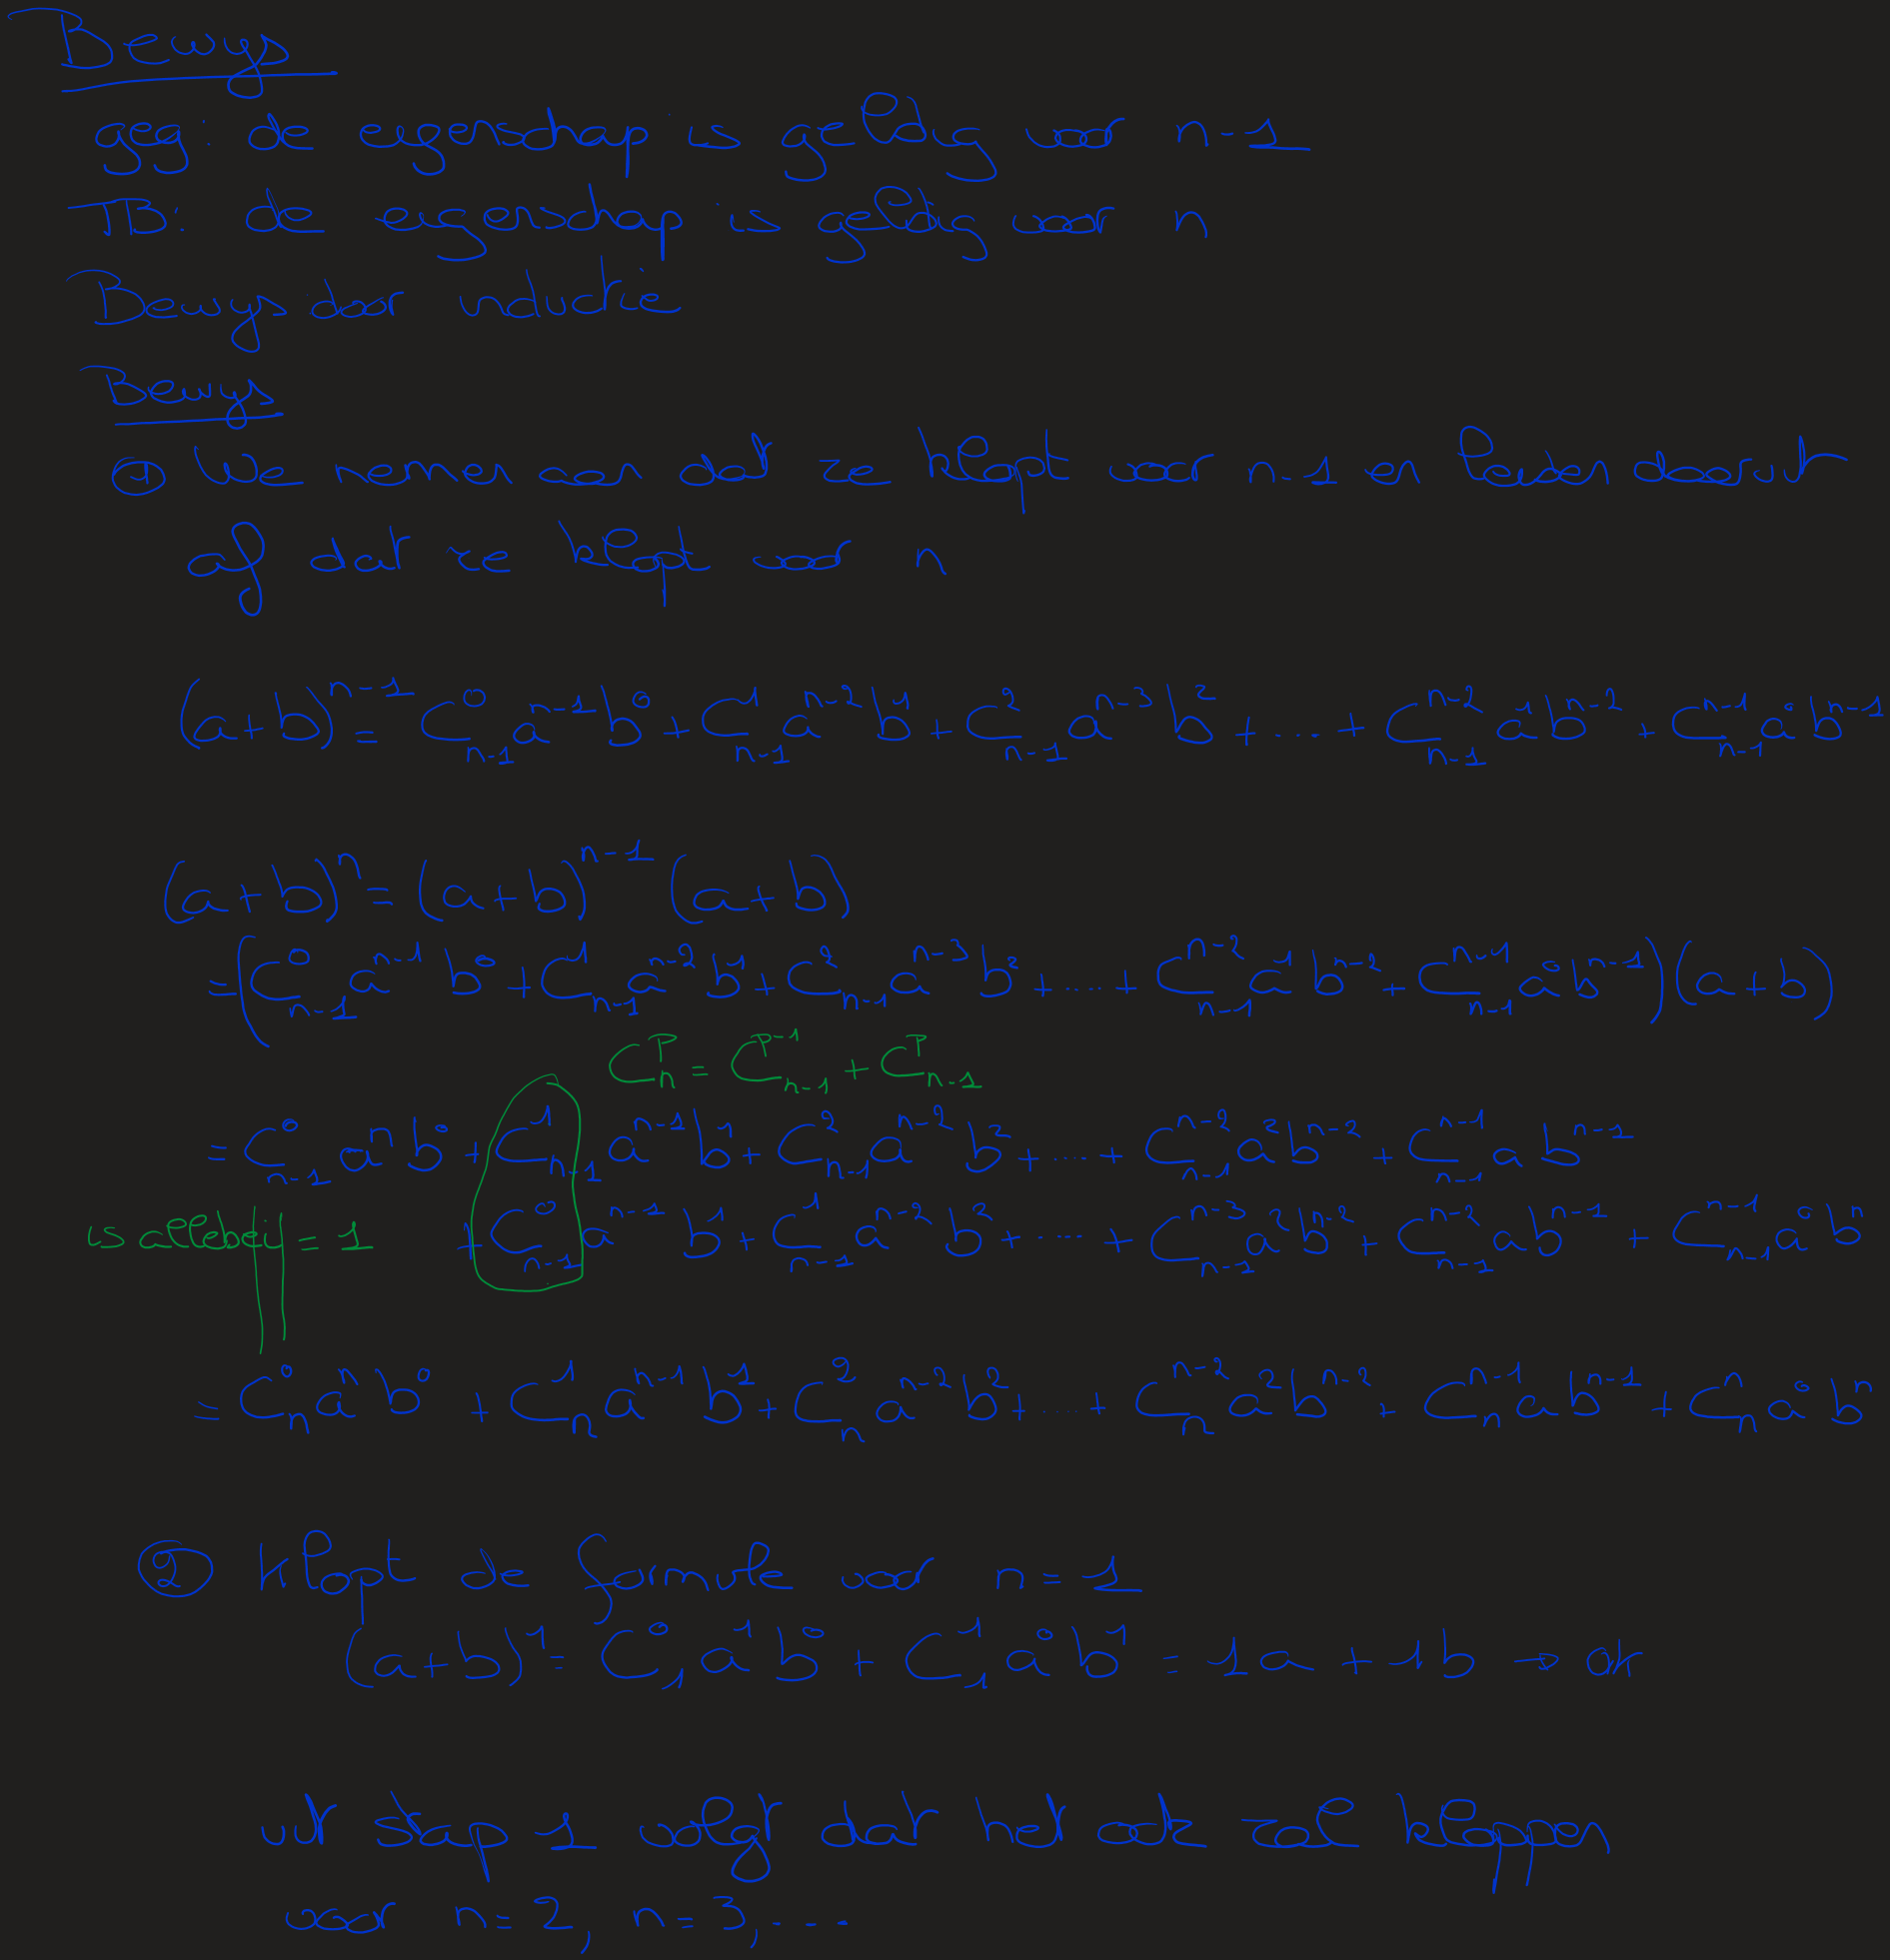 Bewijs
geg: de eigenschap is geldig voor n-1
TB: de eigenschap is geldig voor n
Bewijs door inductie
Bewijs
① We nemen aan dat ze klopt voor n-1 en leiden daaruit
af dat ze klopt voor n
(a+b)^{n-1} = C^0_{n-1} a^{n-1} b^0 + C^1_{n-1} a^{n-2} b^1 + C^2_{n-1} a^{n-3} b^2 + .... + C^{n-2}_{n-1} a^1 b^{n-2} + C^{n-1}_{n-1} a^0 b^{n-1}
(a+b)^n = (a+b)^{n-1} (a+b)
= (C^0_{n-1} a^{n-1} b^0 + C^1_{n-1} a^{n-2} b^1 + C^2_{n-1} a^{n-3} b^2 + .... + C^{n-2}_{n-1} a^1 b^{n-2} + C^{n-1}_{n-1} a^0 b^{n-1}) (a+b)
C^p_n = C^{p-1}_{n-1} + C^p_{n-1}
= C^0_{n-1} a^n b^0 + C^1_{n-1} a^{n-1} b^1 + C^2_{n-1} a^{n-2} b^2 + .... + C^{n-2}_{n-1} a^2 b^{n-2} + C^{n-1}_{n-1} a b^{n-1}
is allebei = 1
+ C^0_{n-1} a^{n-1} b^1 + C^1_{n-1} a^{n-2} b^2 + .... + C^{n-3}_{n-1} a^2 b^{n-2} + C^{n-2}_{n-1} a b^{n-1} + C^{n-1}_{n-1} a^0 b^n
= C^0_n a^n b^0 + C^1_n a^{n-1} b^1 + C^2_n a^{n-2} b^2 + .... + C^{n-2}_n a^2 b^{n-2} + C^{n-1}_n a b^{n-1} + C^n_n a^0 b^n
② Klopt de formule voor n = 1
(a+b)^1 = C^0_1 a^1 b^0 + C^1_1 a^0 b^1 = 1a + 1b → ok
uit stap 1 volgt dat het ook zal kloppen
voor n=2, n=3, ...